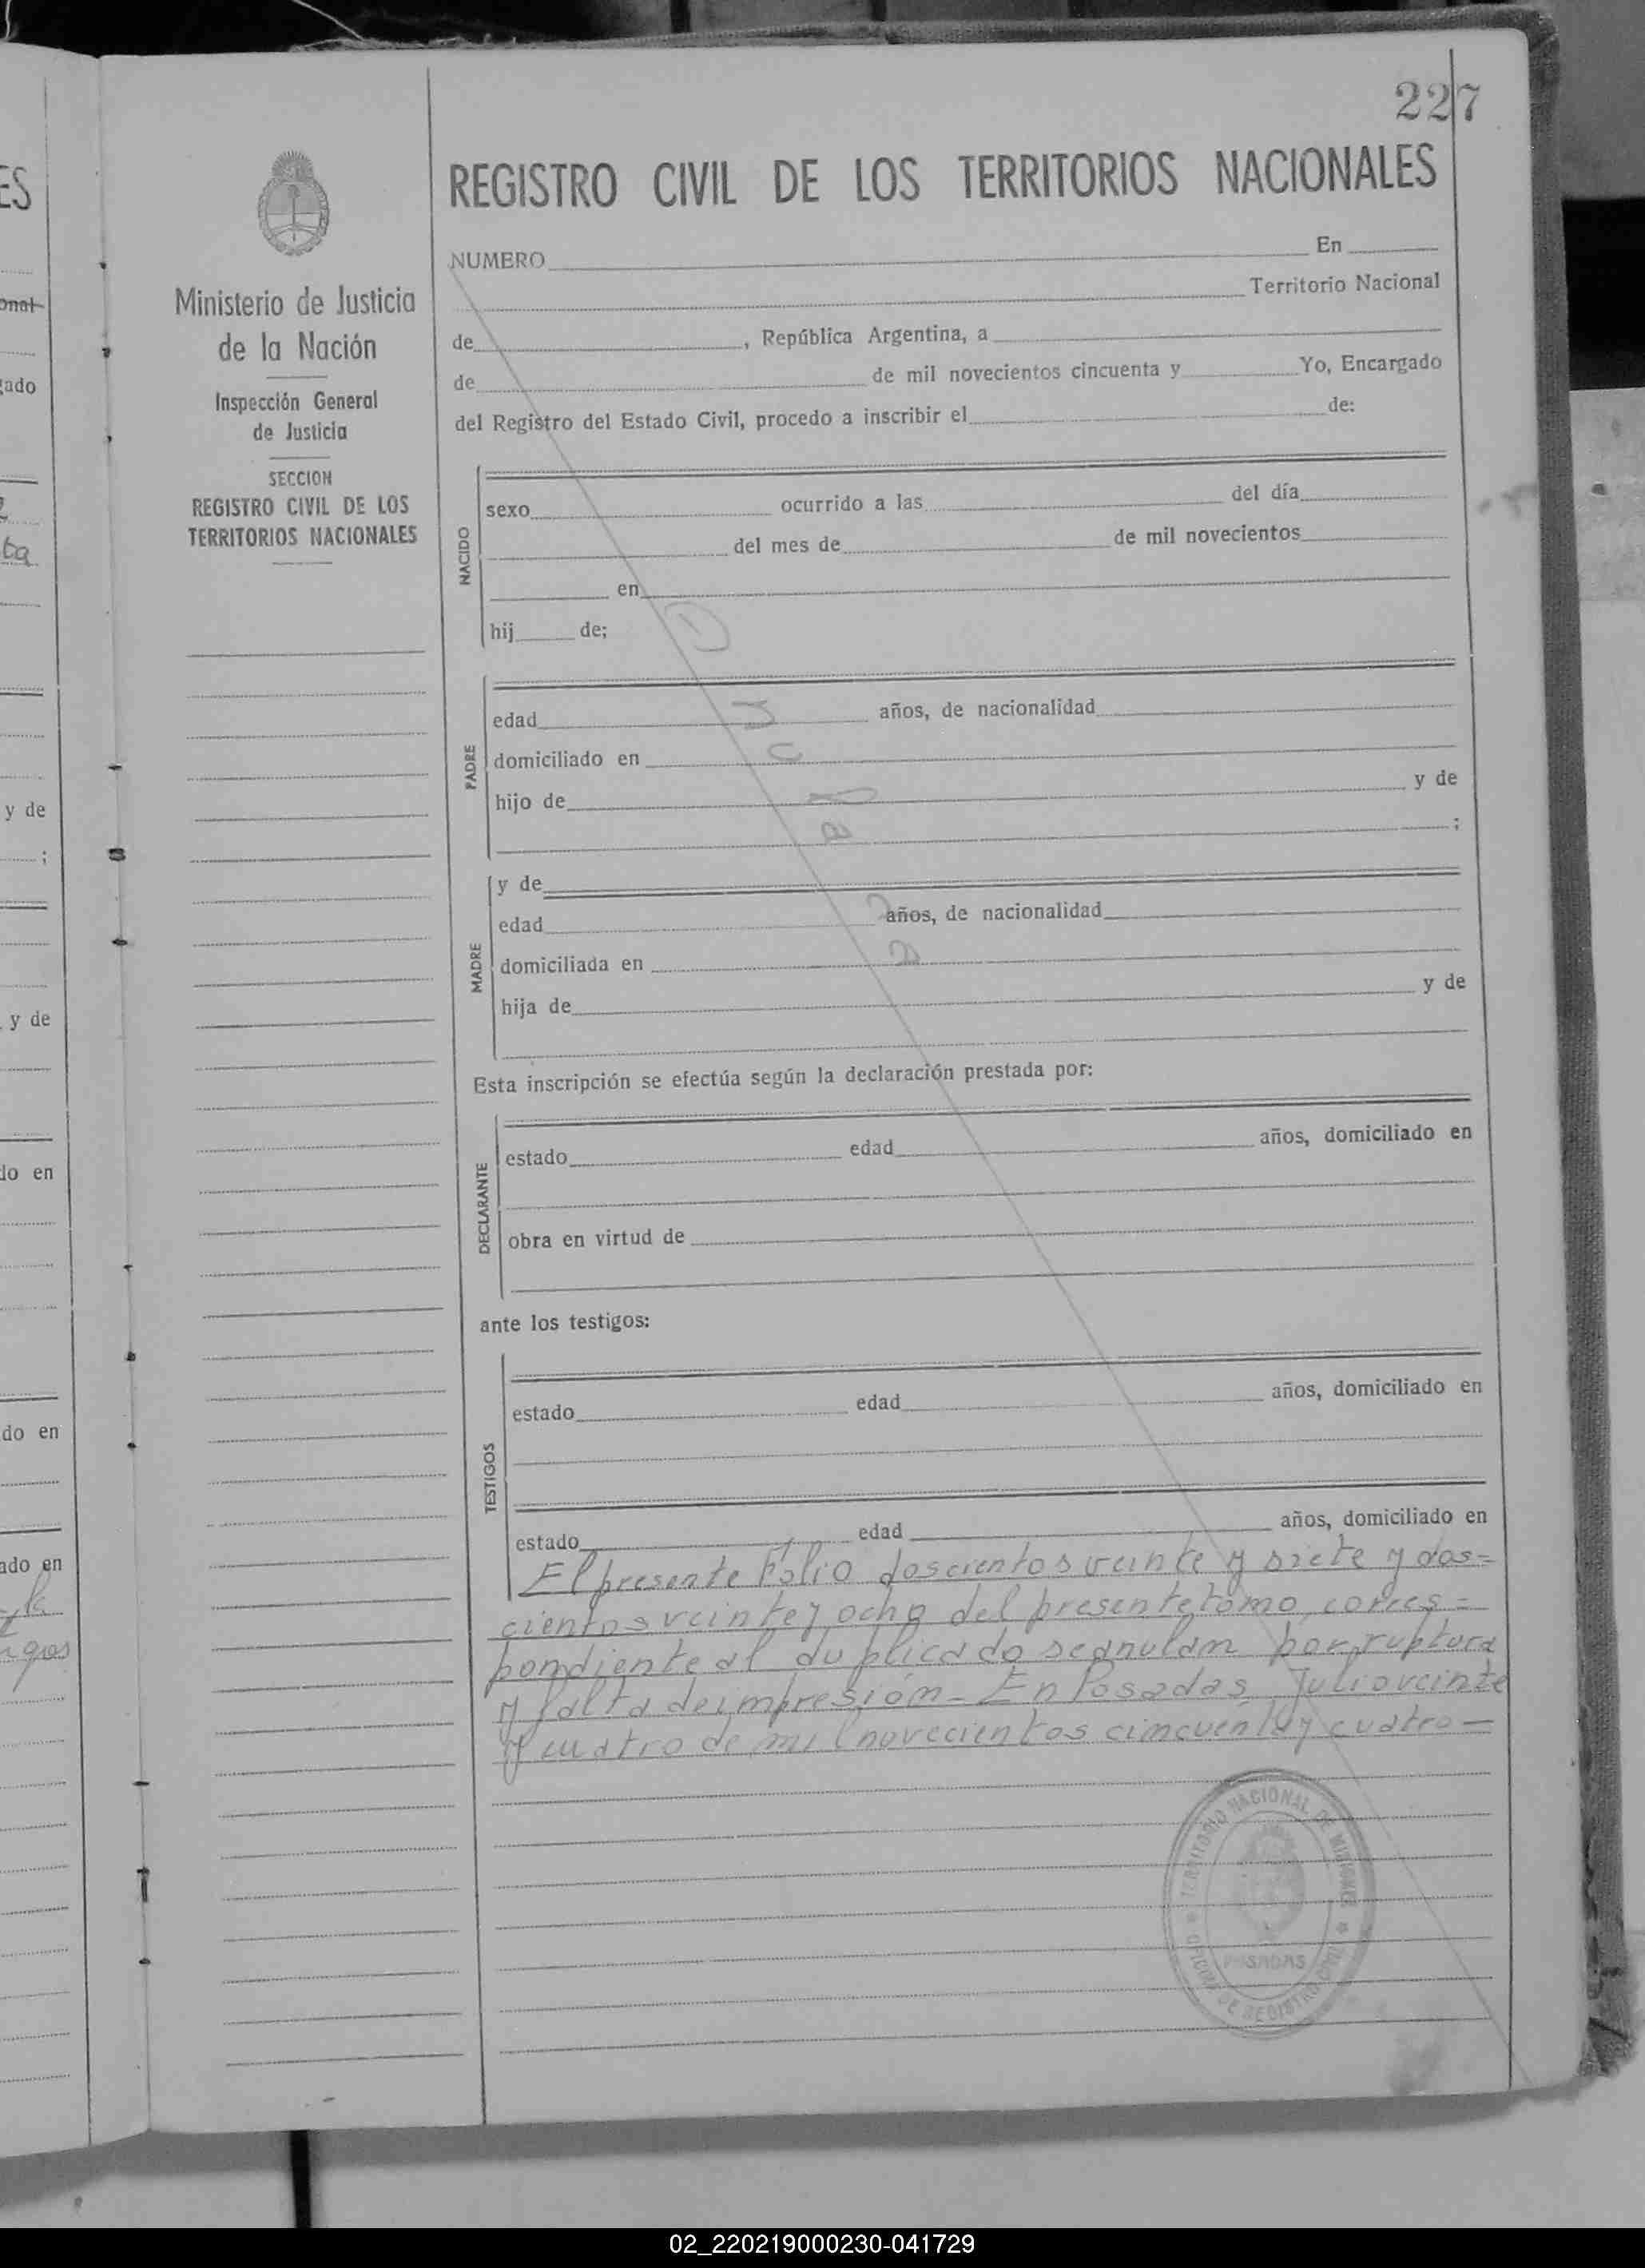 227
REGISTRO CIVIL DE LOS TERRITORIOS NACIONALES
Ministerio de Justicia
de la Nación
Inspección General
de Justicia
SECCION
REGISTRO CIVIL DE LOS
TERRITORIOS NACIONALES
NUMERO En
Territorio Nacional
de , República Argentina, a
de de mil novecientos cincuenta y Yo, Encargado
del Registro del Estado Civil, procedo a inscribir el de:
NACIDO
sexo ocurrido a las del día
del mes de de mil novecientos
en
hij de;
PADRE
edad años, de nacionalidad
domiciliado en
hijo de y de
;
MADRE
y de
edad años, de nacionalidad
domiciliada en
hija de y de
Esta inscripción se efectúa según la declaración prestada por:
DECLARANTE
estado edad años, domiciliado en
obra en virtud de
ante los testigos:
TESTIGOS
estado edad años, domiciliado en
estado edad años, domiciliado en
El presente Folio doscientos veinte y siete y dos=
cientos veinte y ocho del presente tomo, corres=
pondiente al duplicado se anulan por ruptura
y falta de impresión - En Posadas, Julio veinte
y cuatro de mil novecientos cincuenta y cuatro -
TERRITORIO NACIONAL DE MISIONES
POSADAS
OFICINA DE REGISTRO CIVIL
ES
onal
gado
ta
y de
;
y de
do en
do en
ado en
02_220219000230-041729